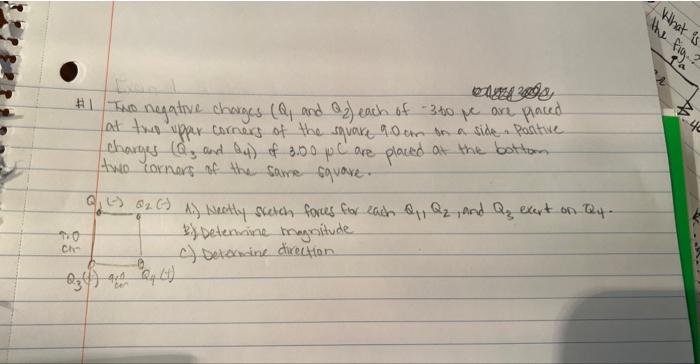 What is
the fig.
a
#1 Two negative charges (Q1 and Q2) each of -3.00 μC are placed
at two upper corners of the square 9.0 cm on a side. Positive
charges (Q3 and Q4) of 3.00 μC are placed at the bottom
two corners of the same square.
Q1 (-) Q2 (-)
A.) Neatly sketch forces for each Q1, Q2, and Q3 exert on Q4.
B.) Determine magnitude
C.) Determine direction
9.0
cm
Q3(+) 9.0 cm Q4 (+)